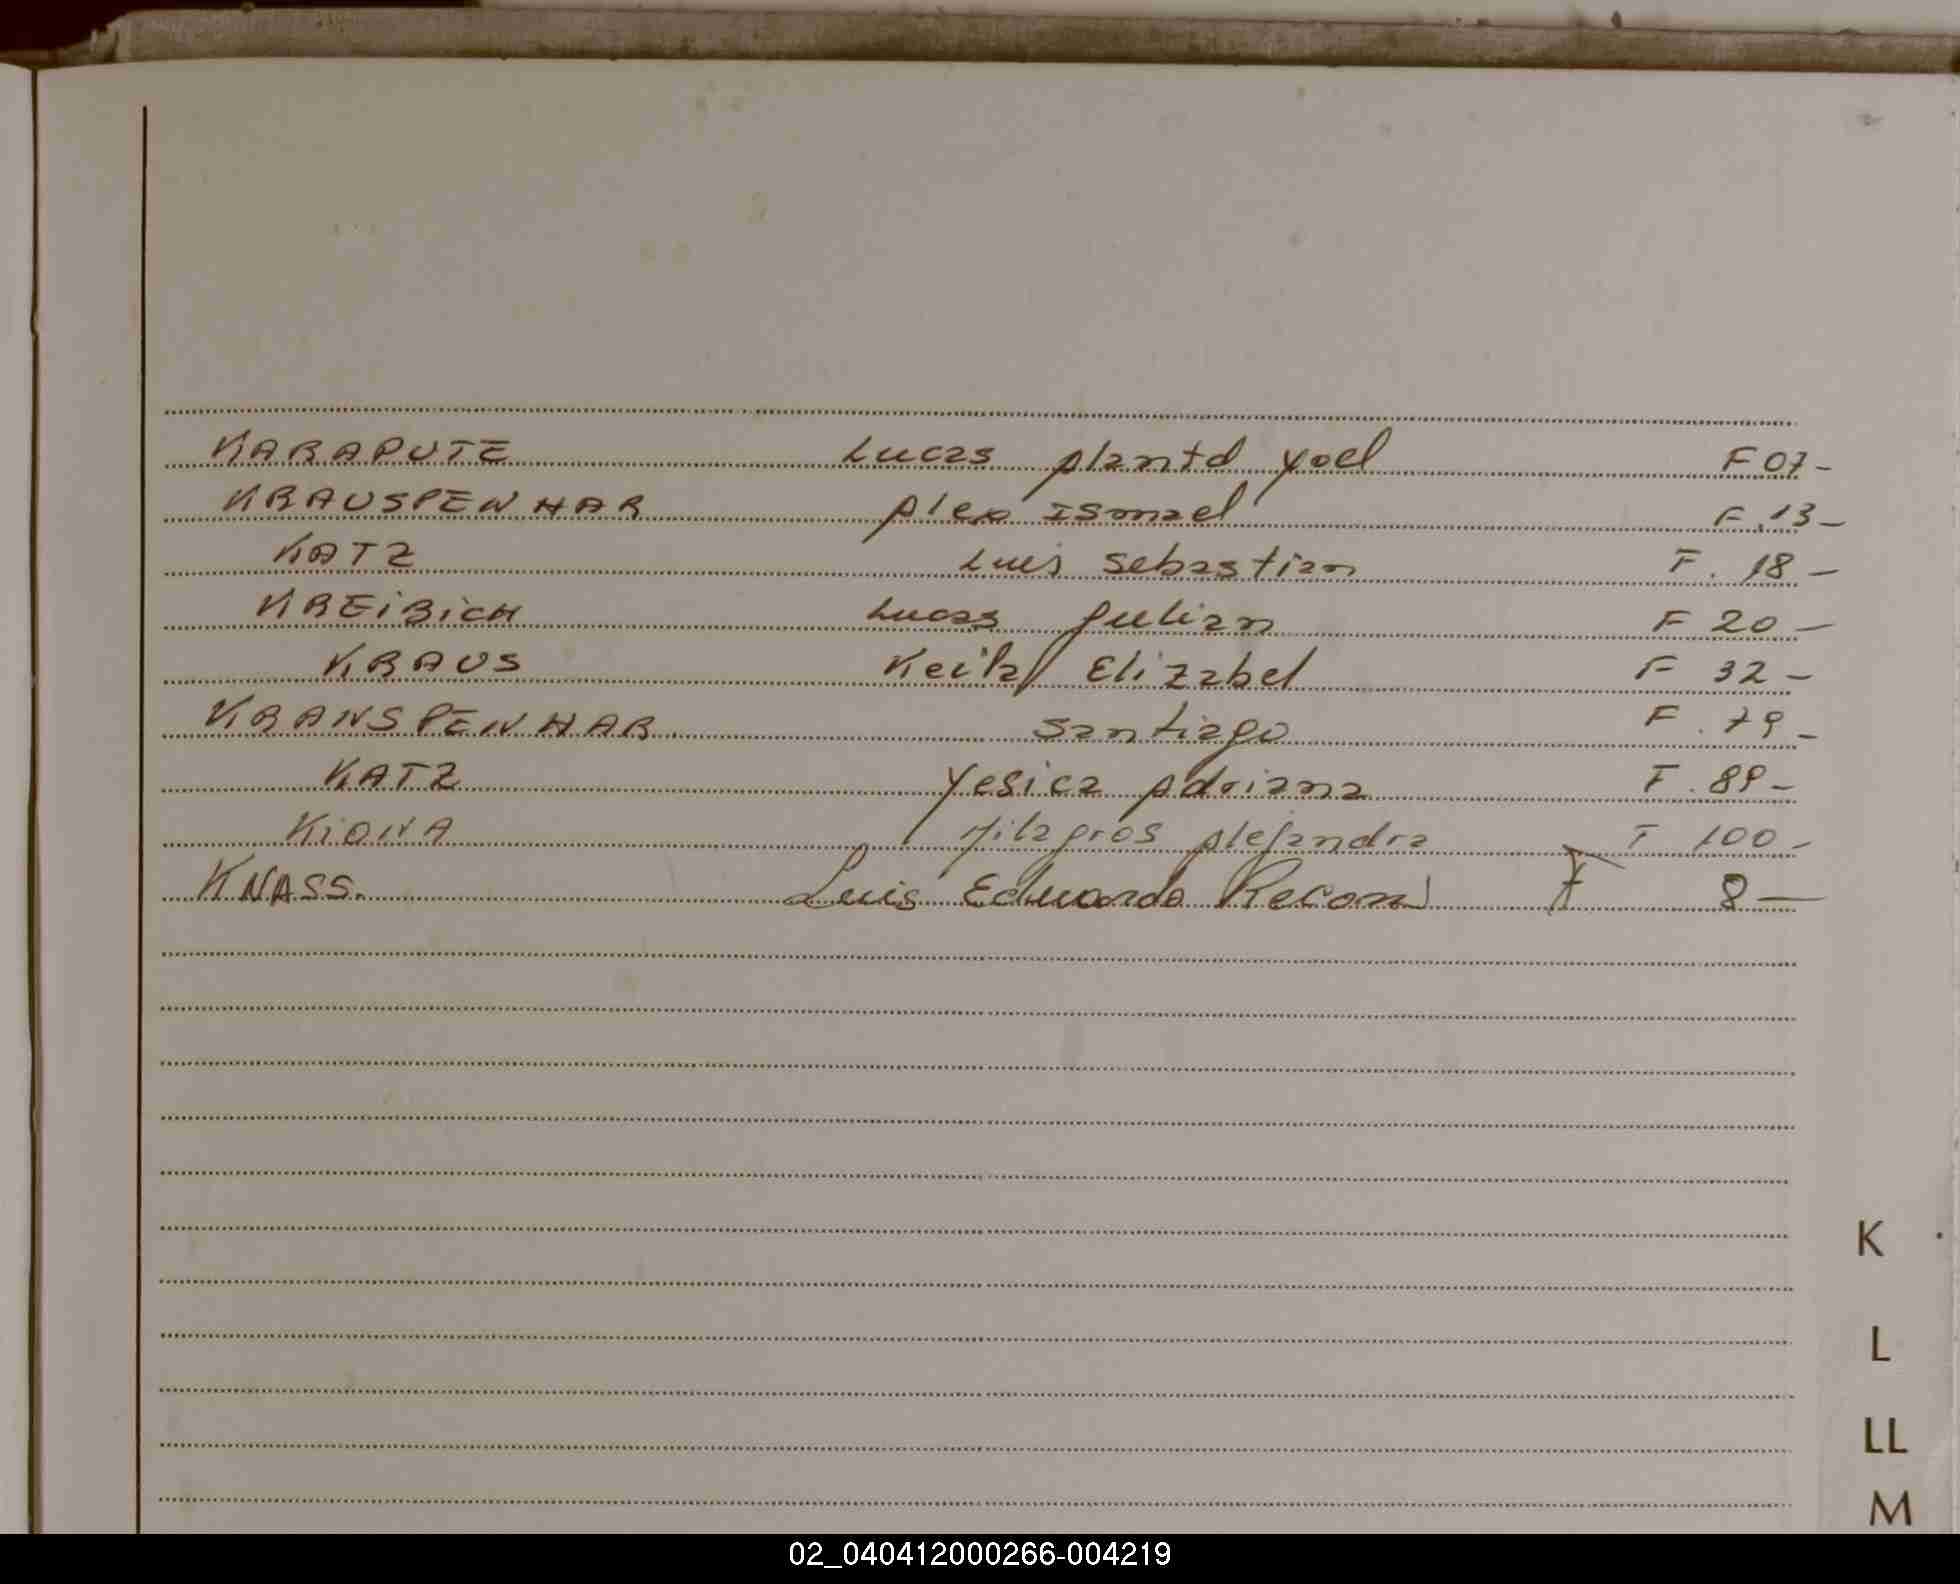 KARAPUTE Lucas Yoel F 07-
KRAUSPENHAR Alex Ismael F. 13-
KATZ Luis Sebastian F. 18-
KREiBiCH Lucas Julian F 20-
KRAUS Keila Elizabel F 32-
KRANSPENHAR Santiago F. 79-
KATZ Yesica Adriana F. 89-
KiONA Milagros Alejandra F 100-
KNASS. Luis Eduardo F 8-
K
L
LL
M
02_040412000266-004219